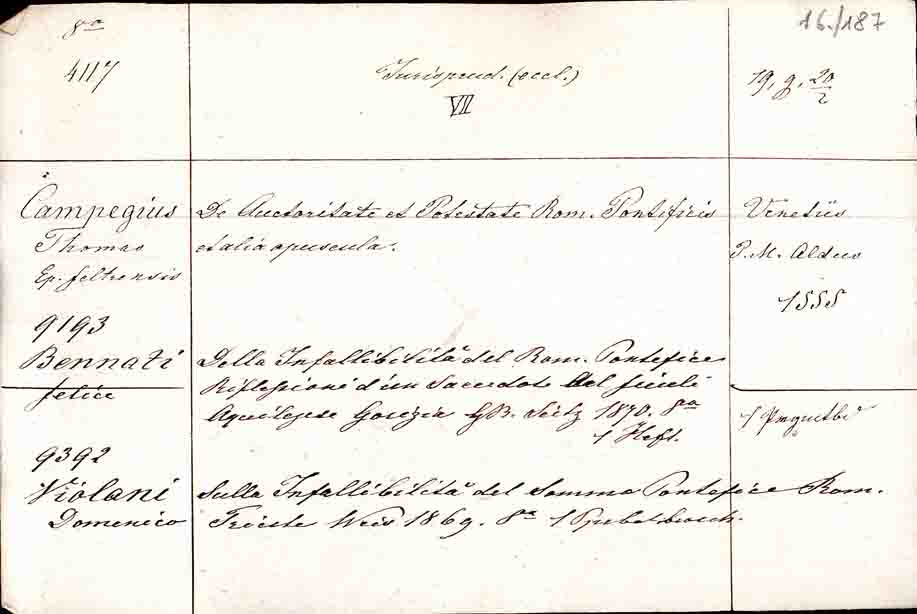 16./187
8º
4117
Jurisprud. (eccl.)
VII
19, g. 20/2
Campegius
Thomas
Ep. feltrensis
De Auctoritate et Potestate Rom. Pontificis
et alia opuscula.
Venetiis
P. M. Aldus
1555
9193
Bennati
felice
Della Infallibilità del Rom. Pontefice
Riflessione d'un Sacerdote del
Aquilejese Gorizia GB. Seitz 1870. 8º
1 Heft.
1
9392
Violani
Domenico
Sulla Infallibilità del Sommo Pontefice Rom.
Trieste Weis 1869. 8º 1